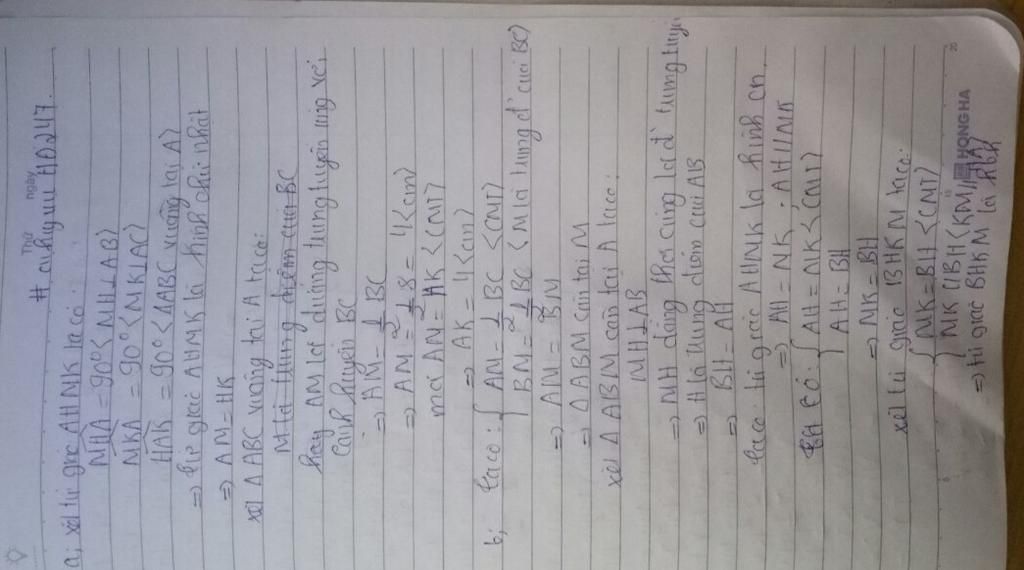 Thứ ngày
# auhyuu HD247.
a; xét tứ giác AHMK ta có
MHA = 90° < MH⊥AB>
MKA = 90° < MK⊥AC>
HAK = 90° < ΔABC vuông tại A>
=> tứ giác AHMK là hình chữ nhật
=> AM = HK
xét ΔABC vuông tại A ta có:
M là trung điểm của BC
hay AM là đường trung tuyến ứng với
cạnh huyền BC
=> AM = 1/2 BC
=> AM = 1/2 8 = 4 <cm>
mà AM = HK < CMT>
=> AK = 4 <cm>
b; ta có: { AM = 1/2 BC < CMT>
BM = 1/2 BC < M là trung đ' của BC>
=> AM = BM
=> ΔABM cân tại M
xét ΔABM cân tại A ta có:
MH⊥AB
=> MH đồng thời cũng là đ' trung tuyến
=> H là trung điểm của AB
=> BH = AH
ta có: tứ giác AHMK là hình cn.
=> AH = MK ; AH//MK
có: { AH = MK < CMT>
AH = BH
=> MK = BH
xét tứ giác BHKM ta có:
{ MK = BH < CMT>
MK // BH
=> tứ giác BHKM là hbh
HONG HA